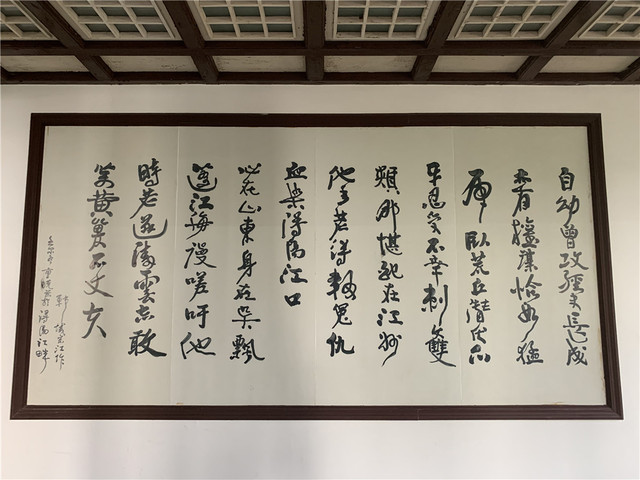 自幼曾攻經史長成
亦有權謀恰如猛
虎臥荒丘潛伏爪
牙忍受不幸刺雙
頰那堪配在江州
他年若得報冤仇
血染潯陽江口
心在山東身在吳飄
蓬江海謾嗟吁他
時若遂凌雲志敢
笑黃巢不丈夫
江作
潯陽江畔